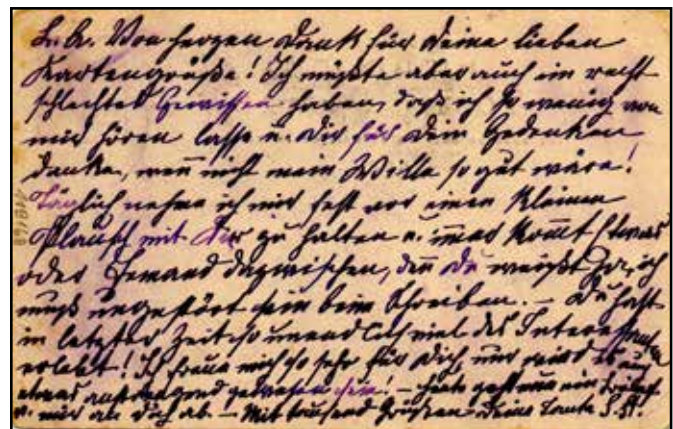 L. K. Von Herzen Dank für Deine lieben
Kartengrüße! Ich müßte aber auch ein recht
schlechtes Gewissen haben, daß ich so wenig von
mir hören lasse u. Dir für Dein Gedenken
danke, wenn nicht mein Wille so gut wäre!
Täglich nehme ich mir fest vor einen kleinen
Plausch mit Dir zu halten u. immer kommt Etwas
oder Jemand dazwischen, denn Du weißt ja, ich
muß ungestört sein beim Schreiben. – Du hast
in letzter Zeit so unendlich viel des Interessanten
erlebt! Ich freue mich so sehr für Dich, nur wird es auch
etwas anstrengend gewesen sein! – Heute geht nur ein
v. mir an Dich ab. – Mit tausend Grüßen Deine Tante